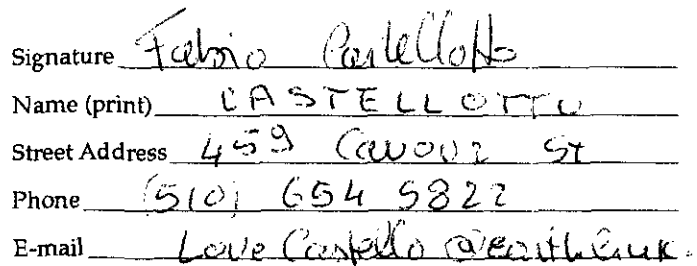 Signature Fabio Castellotto
Name (print) CASTELLOTTO
Street Address 459 CAVOUR St
Phone (510) 654 5822
E-mail LoveCastello@earthlink.